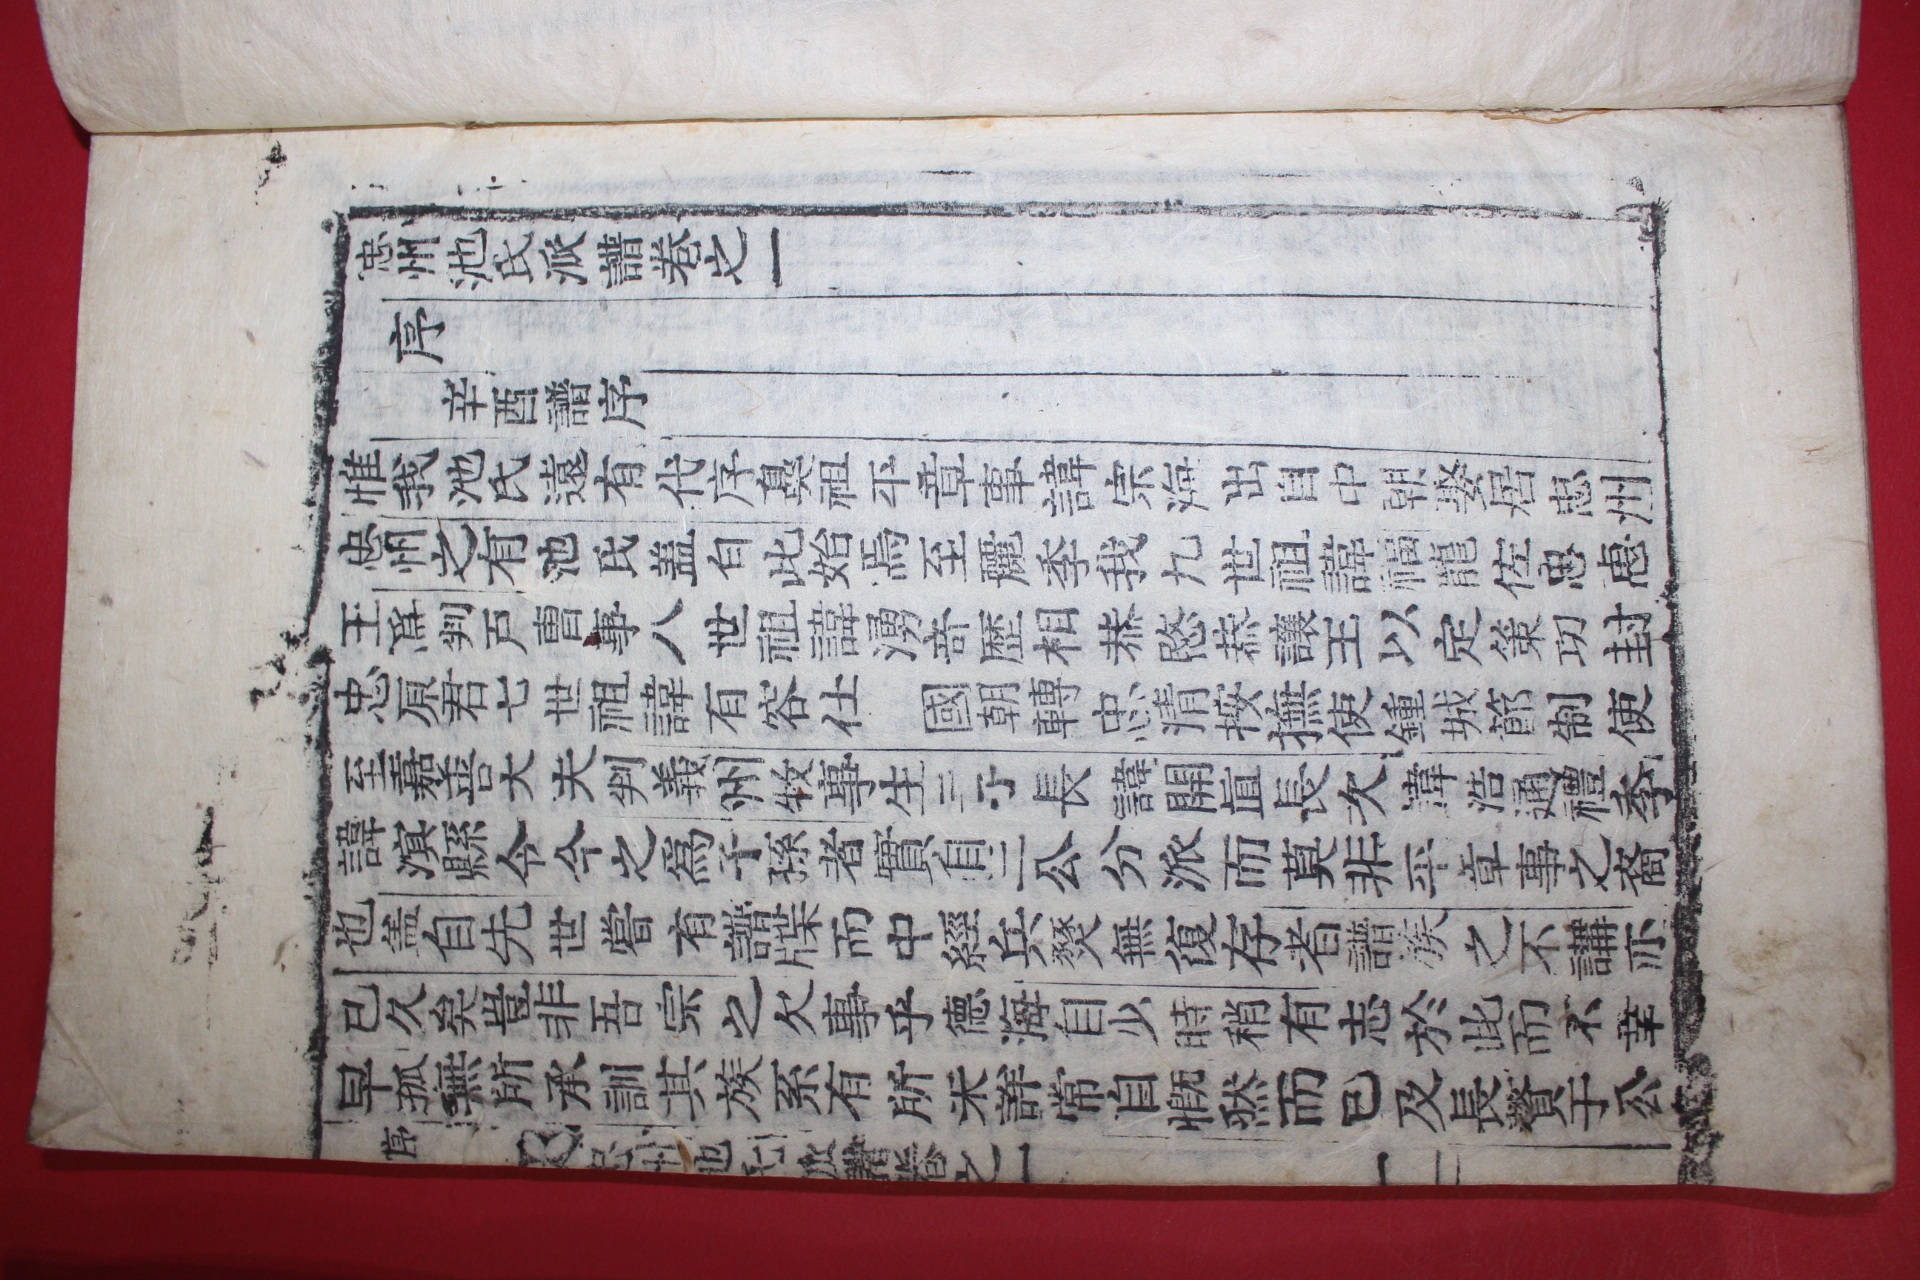 忠州池氏派譜卷之一
序
辛酉譜序
惟我池氏遠有代序鼻祖平章事諱宗海出自中朝居忠州
忠州之有池氏盖自此始焉至麗季我九世祖諱福龍佐忠惠
王爲判戶曹事八世祖諱湧奇歷相恭愍恭讓王以定策功封
忠原君七世祖諱有容仕　國朝轉忠清按撫使鍾城節制使
至嘉善大夫判義州牧事生三子長諱開直長次諱浩通禮季
諱滇縣令今之爲子孫者實自三公分派而莫非平章事之裔
也盖自先世嘗有譜牒而中經兵燹無復存者譜族之不講亦
已久矣豈非吾宗之欠事乎德海自少時稍有志於此而不幸
早孤無所承訓其族系有所未詳常自慨然而已及長贅于公
序
忠州池氏派譜卷之一
一